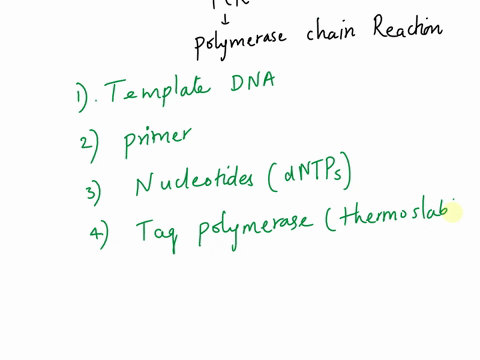 PCR
↓
Polymerase chain Reaction
1). Template DNA
2) Primer
3) Nucleotides (dNTPs)
4) Taq polymerase (thermoslab